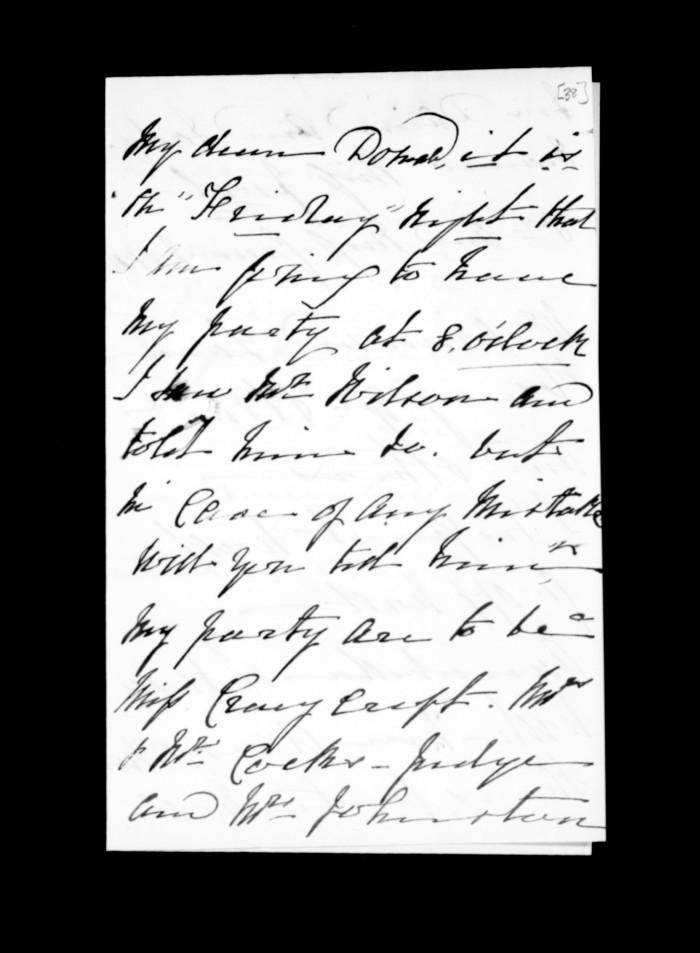 [38]
My dear Donald, it is
the "Friday" night that
I am going to have
My party at 8. o'clock
I saw Mr Wilson and
told him so. but
in Case of any Mistake
Will you tell him
My party are to be
Miss Craycroft. Mrs
& Mr Cocks - Judge
and Mrs Johnston